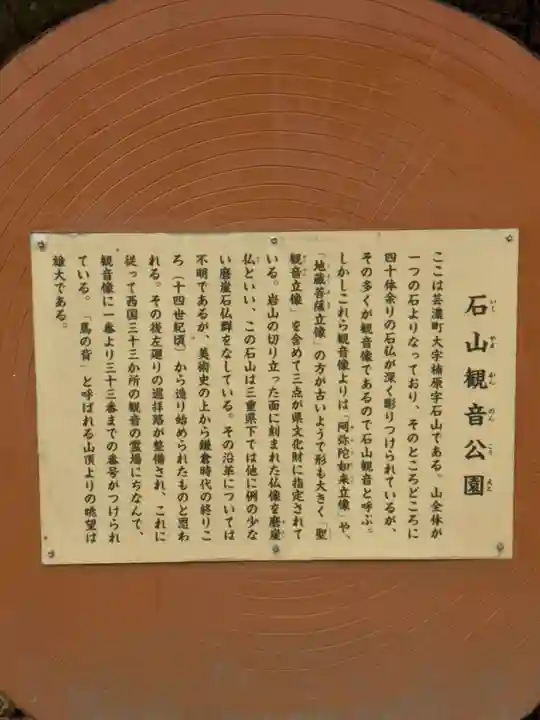 石山観音公園
いし やま かん のん こう えん
ここは芸濃町大字楠原字石山である。山全体が
一つの石よりなっており、そのところどころに
四十体余りの石仏が深く彫りつけられているが、
その多くが観音像であるので石山観音と呼ぶ。
しかしこれら観音像よりは「阿弥陀如来立像」や、
「地蔵菩薩立像」の方が古いようで形も大きく「聖
観音立像」を含めて三点が県文化財に指定されて
いる。岩山の切り立った面に刻まれた仏像を磨崖
仏といい、この石山は三重県下では他に例の少な
い磨崖石仏群をなしている。その沿革については
不明であるが、美術史の上から鎌倉時代の終りこ
ろ(十四世紀頃)から造り始められたものと思わ
れる。その後左廻りの巡拝路が整備され、これに
従って西国三十三か所の観音の霊場にちなんで、
観音像に一番より三十三番までの番号がつけられ
ている。「馬の背」と呼ばれる山頂よりの眺望は
雄大である。